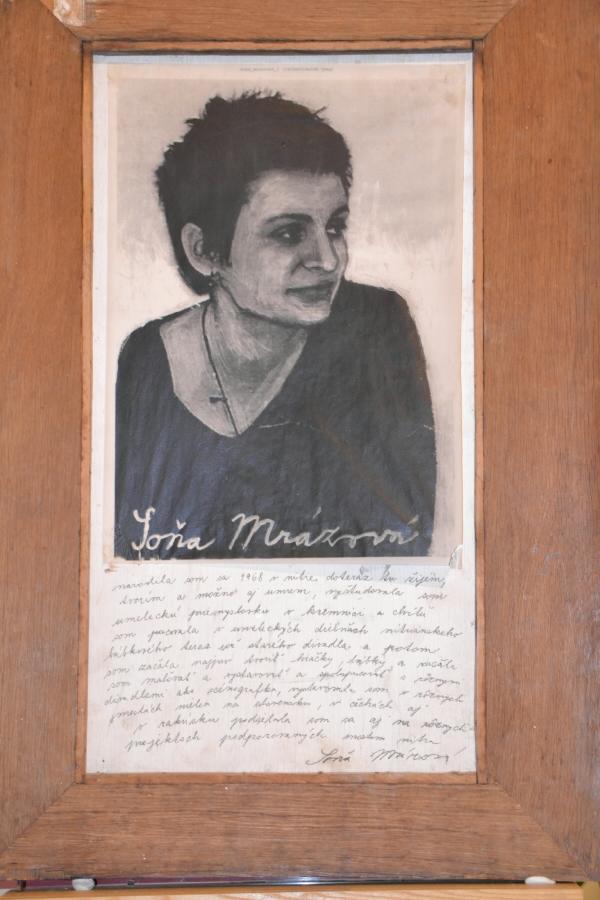 Soňa Mrázová
narodila som sa 1968 v nitre doteraz tu žijem,
tvorím a možno aj umrem, vyštudovala som
umeleckú priemyslovku v kremnici a chvíľu
som pracovala v umeleckých dielňach nitrianskeho
bábkového teraz už starého divadla a potom
som začala najprv tvoriť hračky, bábky a začala
som maľovať a vystavovať a spolupracovať s rôznymi
divadlami ako scénografka, vystavovala som v rôznych
mestách nielen na slovensku, v čechách aj
v rakúsku podieľala som sa aj na rôznych
projektoch podporovaných mestom nitra
Soňa Mrázová